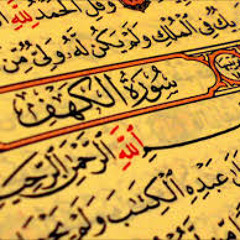 وَقُلِ الْحَمْدُ لِلَّهِ
يكٌ فِي الْمُلْكِ وَلَمْ يَكُن لَّهُ وَلِيٌّ مِّنَ
سُورَةُ الْكَهْفِ
اللَّهِ الرَّحْمَٰنِ الرَّحِيمِ
عَبْدِهِ الْكِتَابَ وَلَمْ